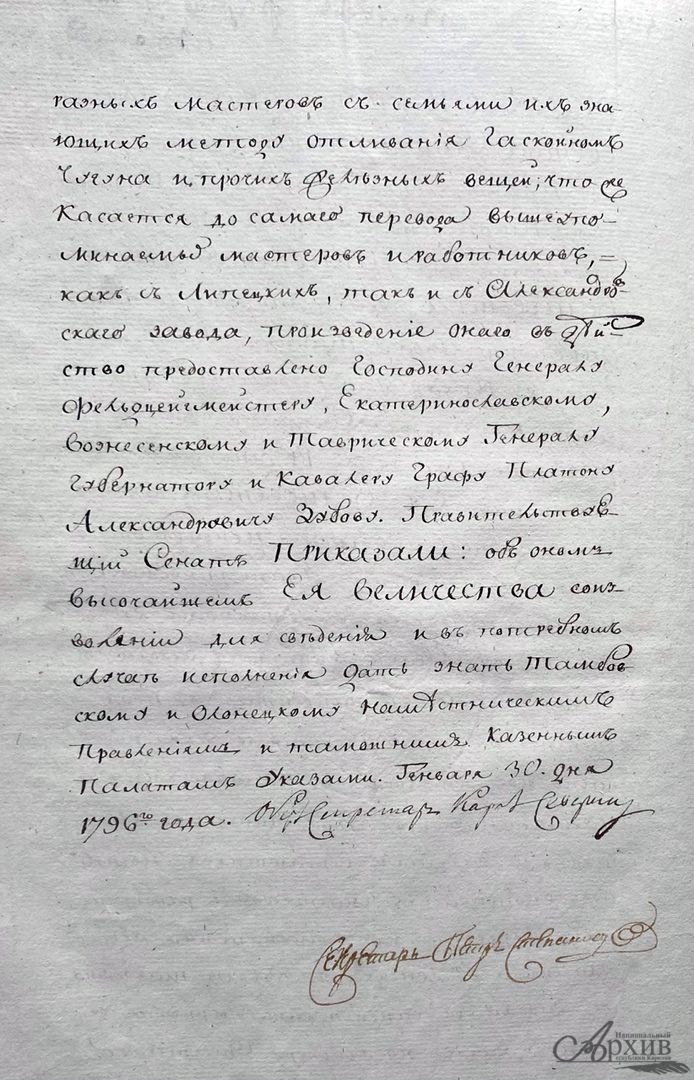 разныхъ мастеровъ съ семьями ихъ зна-
ющихъ методу отливанія Гаскоином
Чугуна и прочихъ вещей; что
касается до самаго перевода вышеупо-
минаемыхъ мастеровъ и работниковъ, =
какъ съ Липецкихъ, такъ и съ Александров-
скаго завода, произведеніе онаго въ дѣй-
ство предоставлено Господину Генералу
Фельдцейгмейстеру, Екатеринославскому,
Вознесенскому и Таврическому Генералу
Губернатору и Кавалеру Графу Платону
Александровичу Зубову. Правительствую-
щій Сенатъ Приказали: объ ономъ
высочайшемъ Ея величества соиз-
воленіи для свѣденія и въ потребномъ
случаѣ исполненія дать знать Тамбов-
скому и Олонецкому намѣстническимъ
Правленіямъ и тамошнимъ Казеннымъ
Палатамъ Указами. Генваря 30. дня
1796го года. Секретарь
Секретарь Петръ
Национальный
Архив
Республики Карелия